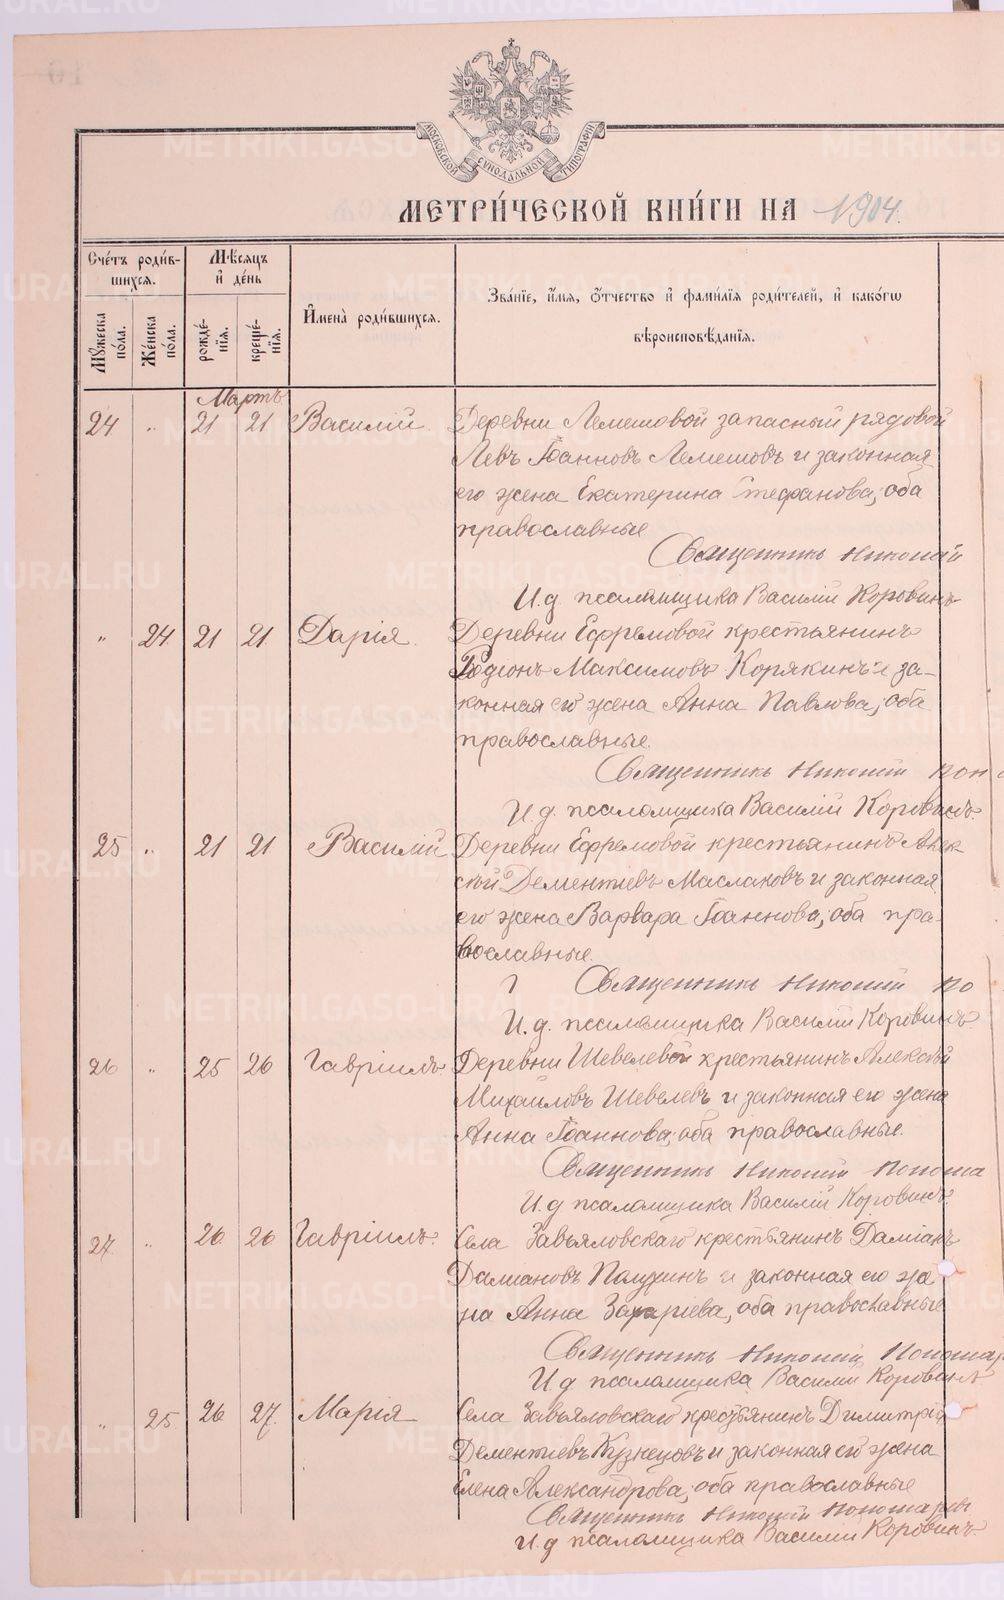 МОСКОВСКОЙ СѴНОДАЛЬНОЙ ТИПОГРАФІИ
МЕТРИ́ЧЕСКОЙ КНИ́ГИ НА 1904.
Сче́тъ роди́в-
шихся.
Мѣ́сяцъ
и҆ де́нь
И҆мена̀ роди́вшихся.
Зва́нїе, и҆́мя, ѻ҆́тчество и҆ фами́лїя роди́телей, и҆ како́гѡ
вѣроисповѣ́данїя.
Мꙋ́жеска
по́ла.
Же́нска
по́ла.
рожде́-
нїя.
креще́-
нїя.
Мартъ
24 " 21 21 Василій Деревни Лемешовой запасный рядовой
Левъ Іоанновъ Лемешовъ и законная
его жена Екатерина Стефанова, оба
православные
Священникъ Николай
И.д. псаломщика Василій Коровинъ
" 24 21 21 Дарія Деревни Ефремовой крестьянинъ
Родіонъ Максимовъ Корякинъ и за-
конная его жена Анна Павлова, оба
православные.
Священникъ Николай Пон
И.д. псаломщика Василій Коровинъ.
25 " 21 21 Василій Деревни Ефремовой крестьянинъ Алек-
сѣй Дементіевъ Маслаковъ и законная
его жена Варвара Іоаннова, оба пра-
вославные.
Священникъ Николай По
И.д. псаломщика Василій Коровинъ
26 " 25 26 Гавріилъ Деревни Шевелевой крестьянинъ Алексѣй
Михаиловъ Шевелевъ и законная его жена
Анна Іоаннова, оба православные.
Священникъ Николай Понома
И.д псаломщика Василій Коровинъ.
27 " 26 26 Гавріилъ Села Завьяловскаго крестьянинъ Даміанъ
Даміановъ и законная его же-
на Анна Захаріева, оба православные
Священникъ Николай Пономар
И.д псаломщика Василій Коровинъ
" 25 26 27 Марія Села Завьяловскаго крестьянинъ Димитрій
Дементіевъ Кузнецовъ и законная его жена
Елена Александрова, оба православные
Священникъ Николай Пономаревъ
И.д псаломщика Василій Коровинъ
METRIKI.GASO-URAL.RU